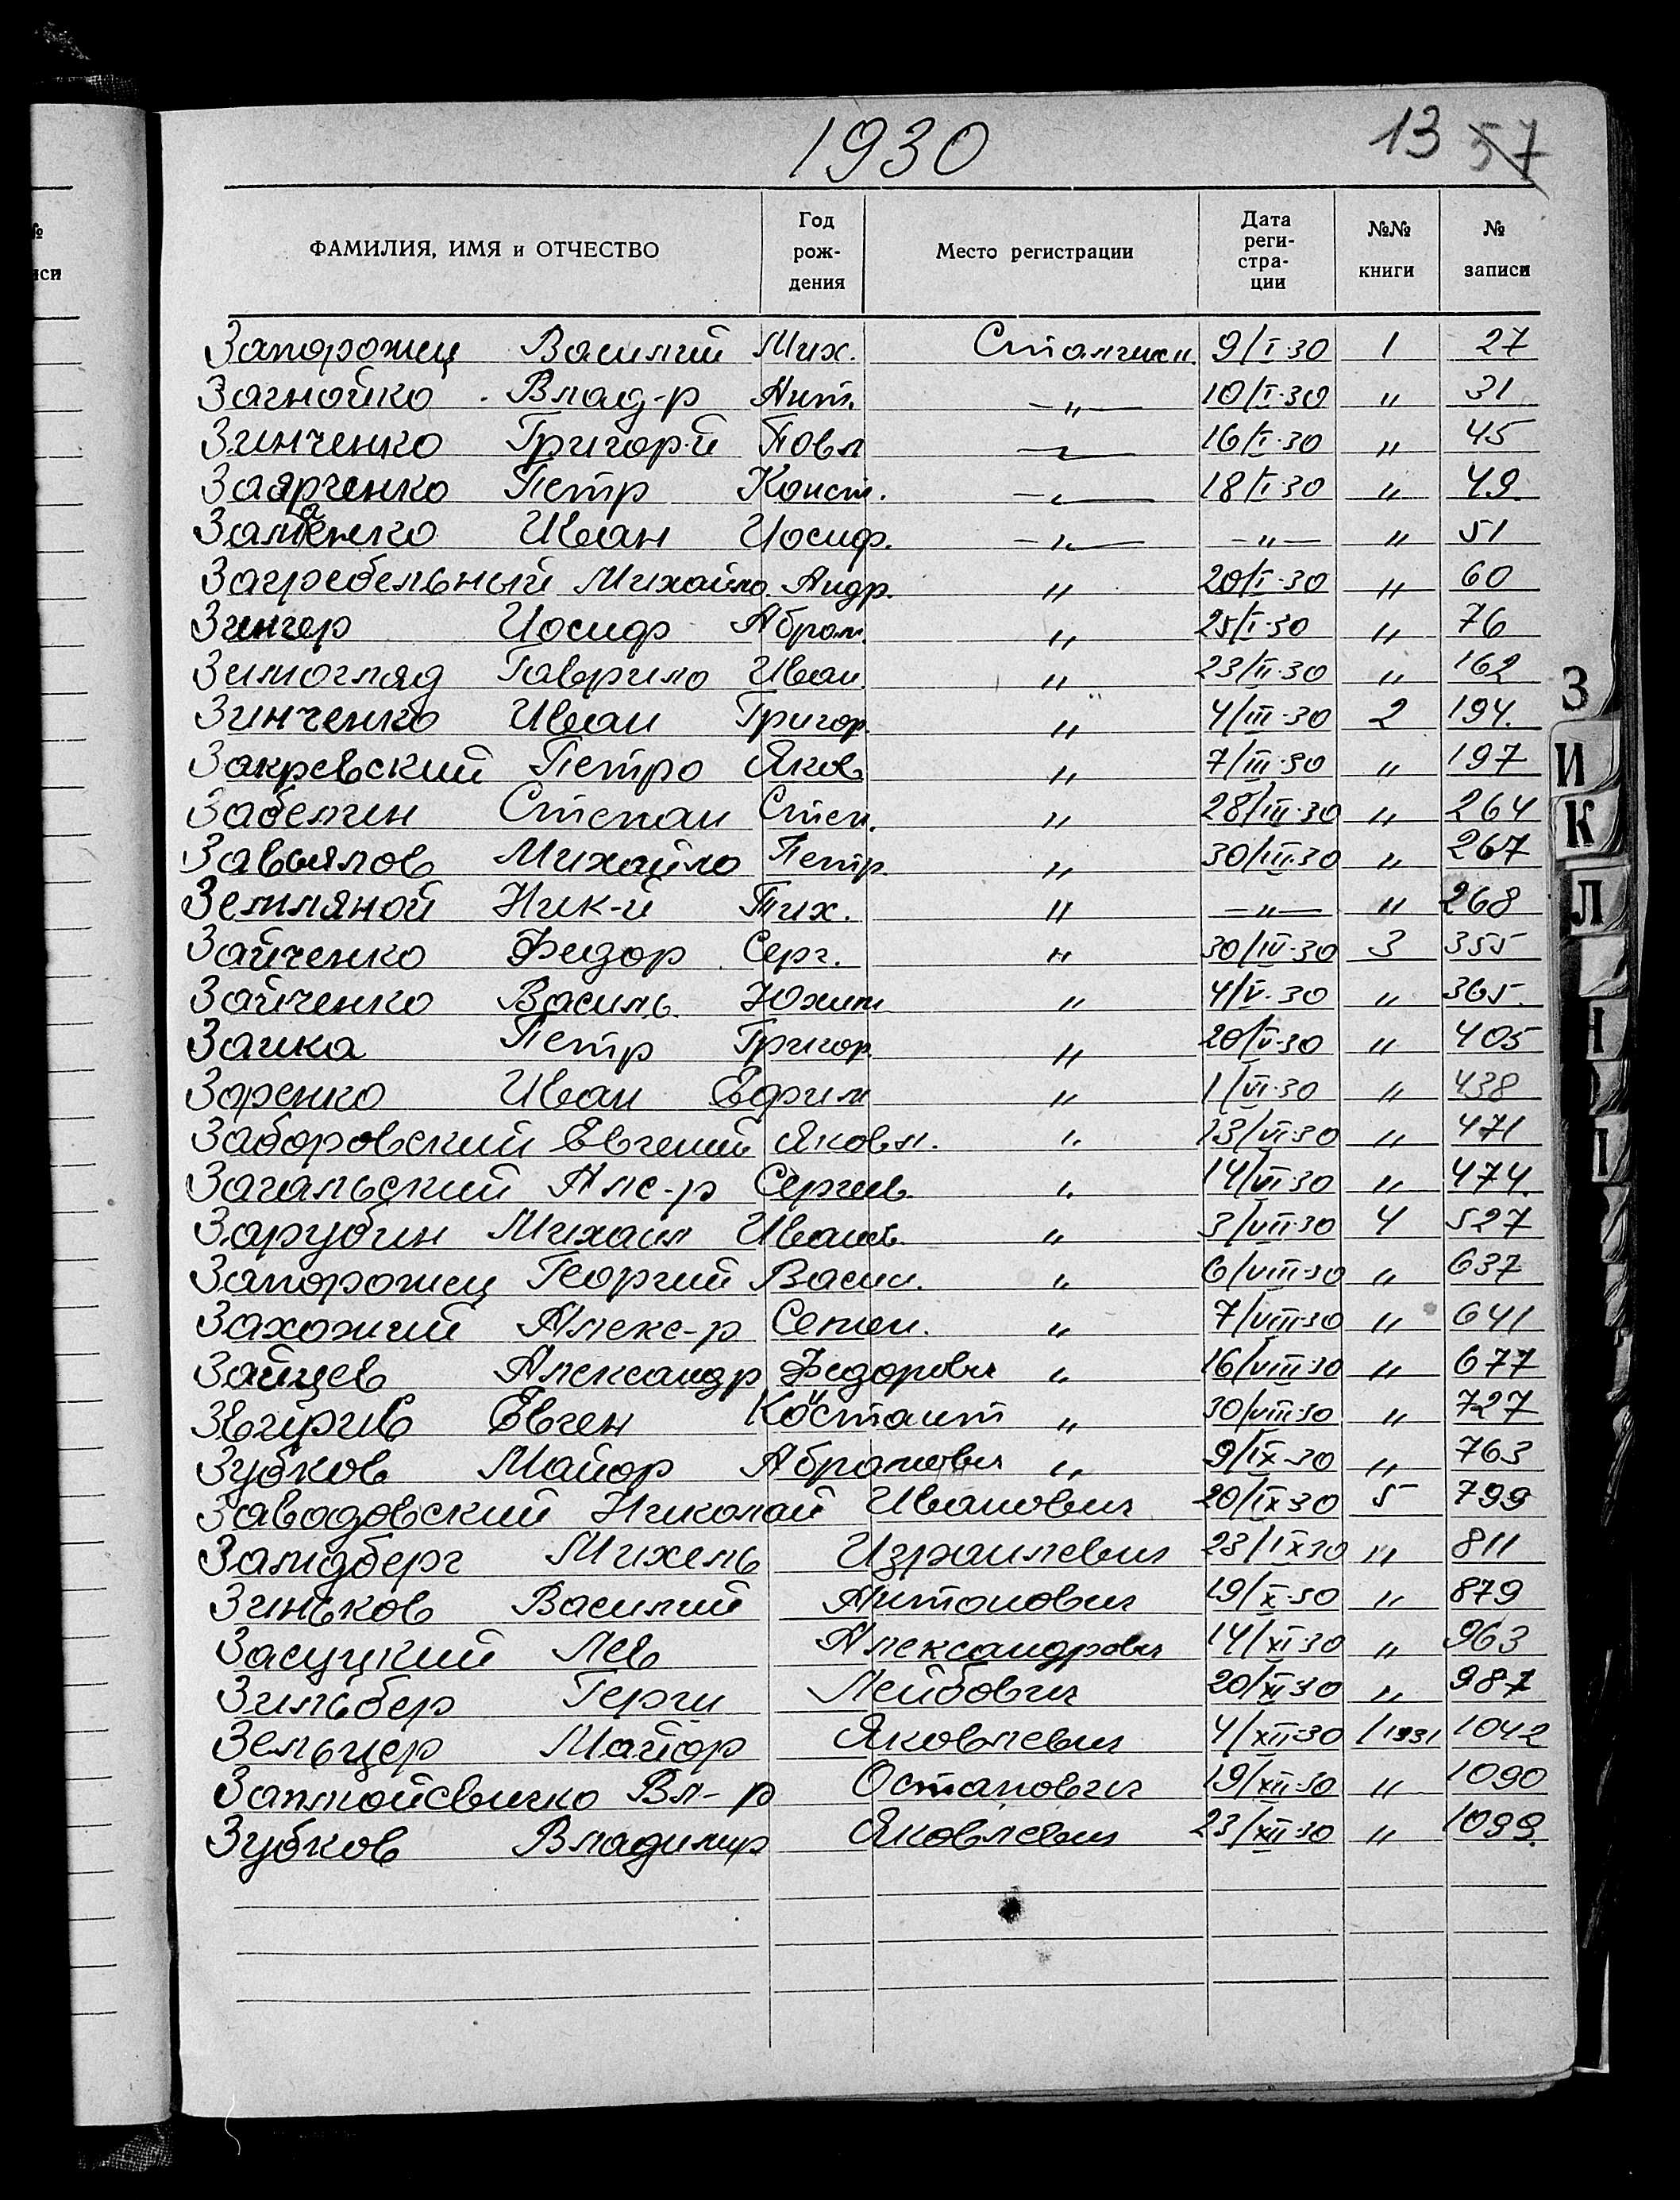 1930
13 57
ФАМИЛИЯ, ИМЯ и ОТЧЕСТВО Год рож- дения Место регистрации Дата реги- стра- ции №№ книги № записи
Запорожец Василий Мих. 9/I-30 1 27
Загнойко Влад-р Ант. —„— 10/I-30 „ 31
Зинченко Григор-й Повл —„— 16/I-30 „ 45
Петр Конст. —„— 18/I-30 „ 49
Иван Иосиф. —„— —„— „ 51
Загребельный Михайло Андр. „ 20/I-30 „ 60
Зингер Иосиф Абрам. „ 25/I-30 „ 76
Зимогляд Гаврило Иван. „ 23/II-30 „ 162
Зинченко Иван Григор. „ 4/III-30 2 194.
Закревский Петро Яков „ 7/III-30 „ 197
Забелин Степан Степ. „ 28/III-30 „ 264
Завьялов Михайло Петр. „ 30/III-30 „ 267
Земляной Ник-й Тих. „ —„— „ 268
Зайченко Федор Серг. „ 30/IV-30 3 355
Зайченко Василь Юхим „ 4/V-30 „ 365.
Заика Петр Григор. „ 20/V-30 „ 405
Заренко Иван Ефрим „ 1/VI-30 „ 438
Заборовский Евгений Яковл. „ 13/VI-30 „ 471
Загальский Алс-р Сергеев. „ 14/VI-30 „ 474.
Зарубин Михаил Иванов. „ 3/VII-30 4 527
Запорожец Георгий Васил. „ 6/VIII-30 „ 637
Захожий Алекс-р Семен. „ 7/VIII-30 „ 641
Зайцев Александр Федорович „ 16/VIII-30 „ 677
Евген „ 30/VIII-30 „ 727
Зубков Майор Абрамович „ 9/IX-30 „ 763
Заводовский Николай Иванович 20/IX-30 5 799
Зандберг Михель Израилевич 23/IX-30 „ 811
Зиньков Василий Антонович 19/X-30 „ 879
Засуцкий Лев Александрович 14/XI-30 „ 963
Зильбер Герш Лейбович 20/XI-30 „ 987
Зельцер Майор Яковлевич 4/XII-30 1/1931 1042
Вл-р Остапович 19/XII-30 „ 1090
Зубков Владимир Яковлевич 23/XII-30 „ 1099.
З
И
К
Л